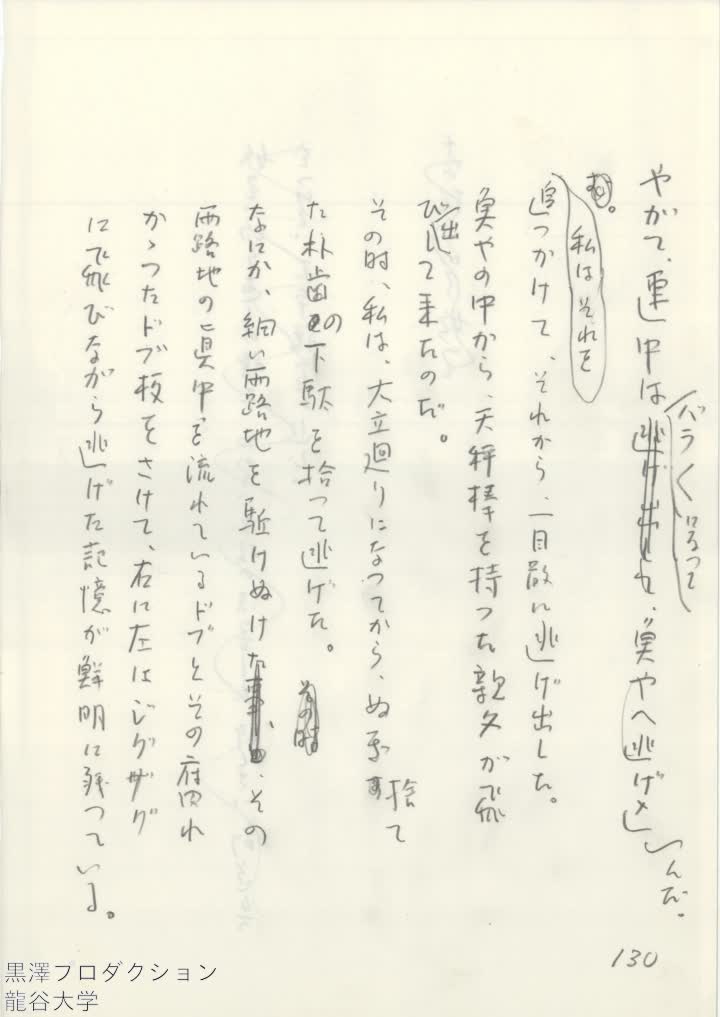 やがて、連中はバラ〱になつて、魚やへ逃げ込んだ。
私はそれを
追つかけて、それから、一目散に逃げ出した。
魚やの中から、天秤棒を持つた親父が飛
び出して来たのだ。
その時、私は、大立廻りになつてから、ぬぎ捨て
た朴歯の下駄を拾つて逃げた。
なにか、細い露路地を駈けぬけた、その
露路地の真中を流れているドブとその腐れ
かゝつたドブ板をさけて、右に左にジグザグ
に飛びながら逃げた記憶が鮮明に残つている。
130
黒澤プロダクション
龍谷大学